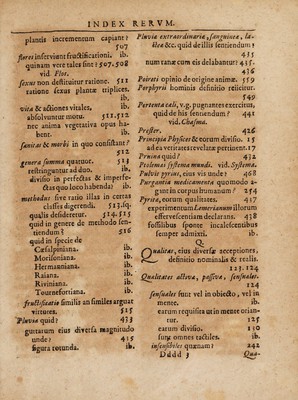 INDEX RERVM.
plantis incrementum capiant?
507
flores inserviant fructificationi. ib.
quinam vere tales sint? 507. 508
vid. Flos.
sexus non destituitur ratione. 511
ratione sexus plantæ triplices.
ib.
vita & actiones vitales,
absolvuntur motu. 511. 512
nec anima vegetativa opus ha-
bent. ib.
sanitas & morbi in quo consistant?
512
genera summa quatuor. 513
restringuntur ad duo. ib.
divisio in perfectas & imperfe-
ctas quo loco habenda? ib.
methodus sive ratio illas in certas
classes digerendi. 513. sq.
qualis desideretur. 514. 515
quid in genere de methodo sen-
tiendum? 516
quid in specie de
Cæsalpiniana. ib.
Morisoniana. ib.
Hermanniana. ib.
Raiana. ib.
Riviniana. ib.
Tournefortiana. ib.
fructificatio similis an similes arguat
virtutes. 515
Pluvia quid? 433
guttarum eius diversa magnitudo
unde? 435
figura rotunda. ib.
Pluvia extraordinaria, sanguinea, la-
ctea &c. quid de illis sentiendum?
435
num ranæ cum eis delabantur? 435.
436
Poireti opinio de origine animæ. 559
Porphyrii hominis definitio reiicitur.
549
Portenta cæli, v. g. pugnantes exercitus
quid de his sentiendum? 441
vid. Chasma.
Prester. 426
Principia Physices & eorum divisio. 15
ad ea veritates revelatæ pertinent. 17
Pruina quid? 432
Ptolemæi systema mundi. vid. Systema.
Pulvis pyrius, eius vis unde? 468
Purgantia medicamenta quomodo a-
gant in corpus humanum? 254
Pyritæ, eorum qualitates. 417
experimentum Lemerianum illorum
effervescentiam declarans. 438
fossilibus spontè incalescentibus
semper admixti. ib.
Q.
Qualitas, eius diversæ acceptiones,
definitio nominalis & realis.
123. 124
Qualitates activæ, passivæ, sensuales.
124
sensuales sunt vel in obiecto, vel in
mente. ib.
earum requisita ut in mente orian-
tur. 125
earum divisio. 130
sunt omnes tactiles. ib.
insensibiles quænam? 242
Dddd 3
Qua-